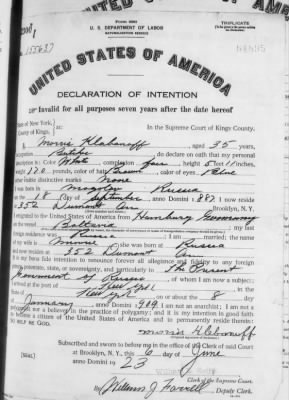 UNITED STATES OF AMERICA
Form 2203
U. S. DEPARTMENT OF LABOR
NATURALIZATION SERVICE
TRIPLICATE
UNITED STATES OF AMERICA
DECLARATION OF INTENTION
Invalid for all purposes seven years after the date hereof
State of New York,
County of Kings, ss: In the Supreme Court of Kings County.
I, Morris Klebanoff, aged 35 years,
occupation, do declare on oath that my personal
description is: Color White, complexion fair, height 5 feet inches,
weight pounds, color of hair Brown, color of eyes Blue
other visible distinctive marks None
I was born in Mogilev Russia
on the 18 day of September, anno Domini 1887; I now reside
at 352 Dumont Ave, Brooklyn, N.Y.
I emigrated to the United States of America from Hamburg Germany
on the vessel; my last
foreign residence was; I am married; the name
of my wife is Minnie; she was born at Russia
and now resides at 352 Dumont Ave
It is my bona fide intention to renounce forever all allegiance and fidelity to any foreign
prince, potentate, state, or sovereignty, and particularly to The Present
Government of Russia, of whom I am now a subject;
I arrived at the port of New York
on or about the 8 day
of January, anno Domini 1909; I am not an anarchist; I am not a
polygamist nor a believer in the practice of polygamy; and it is my intention in good faith
to become a citizen of the United States of America and to permanently reside therein:
SO HELP ME GOD.
Morris Klebanoff
Subscribed and sworn to before me in the office of the Clerk of said Court
[SEAL] at Brooklyn, N. Y., this 6 day of June
anno Domini 1923
Clerk of the Supreme Court.
By William J. Farrell, Deputy Clerk.